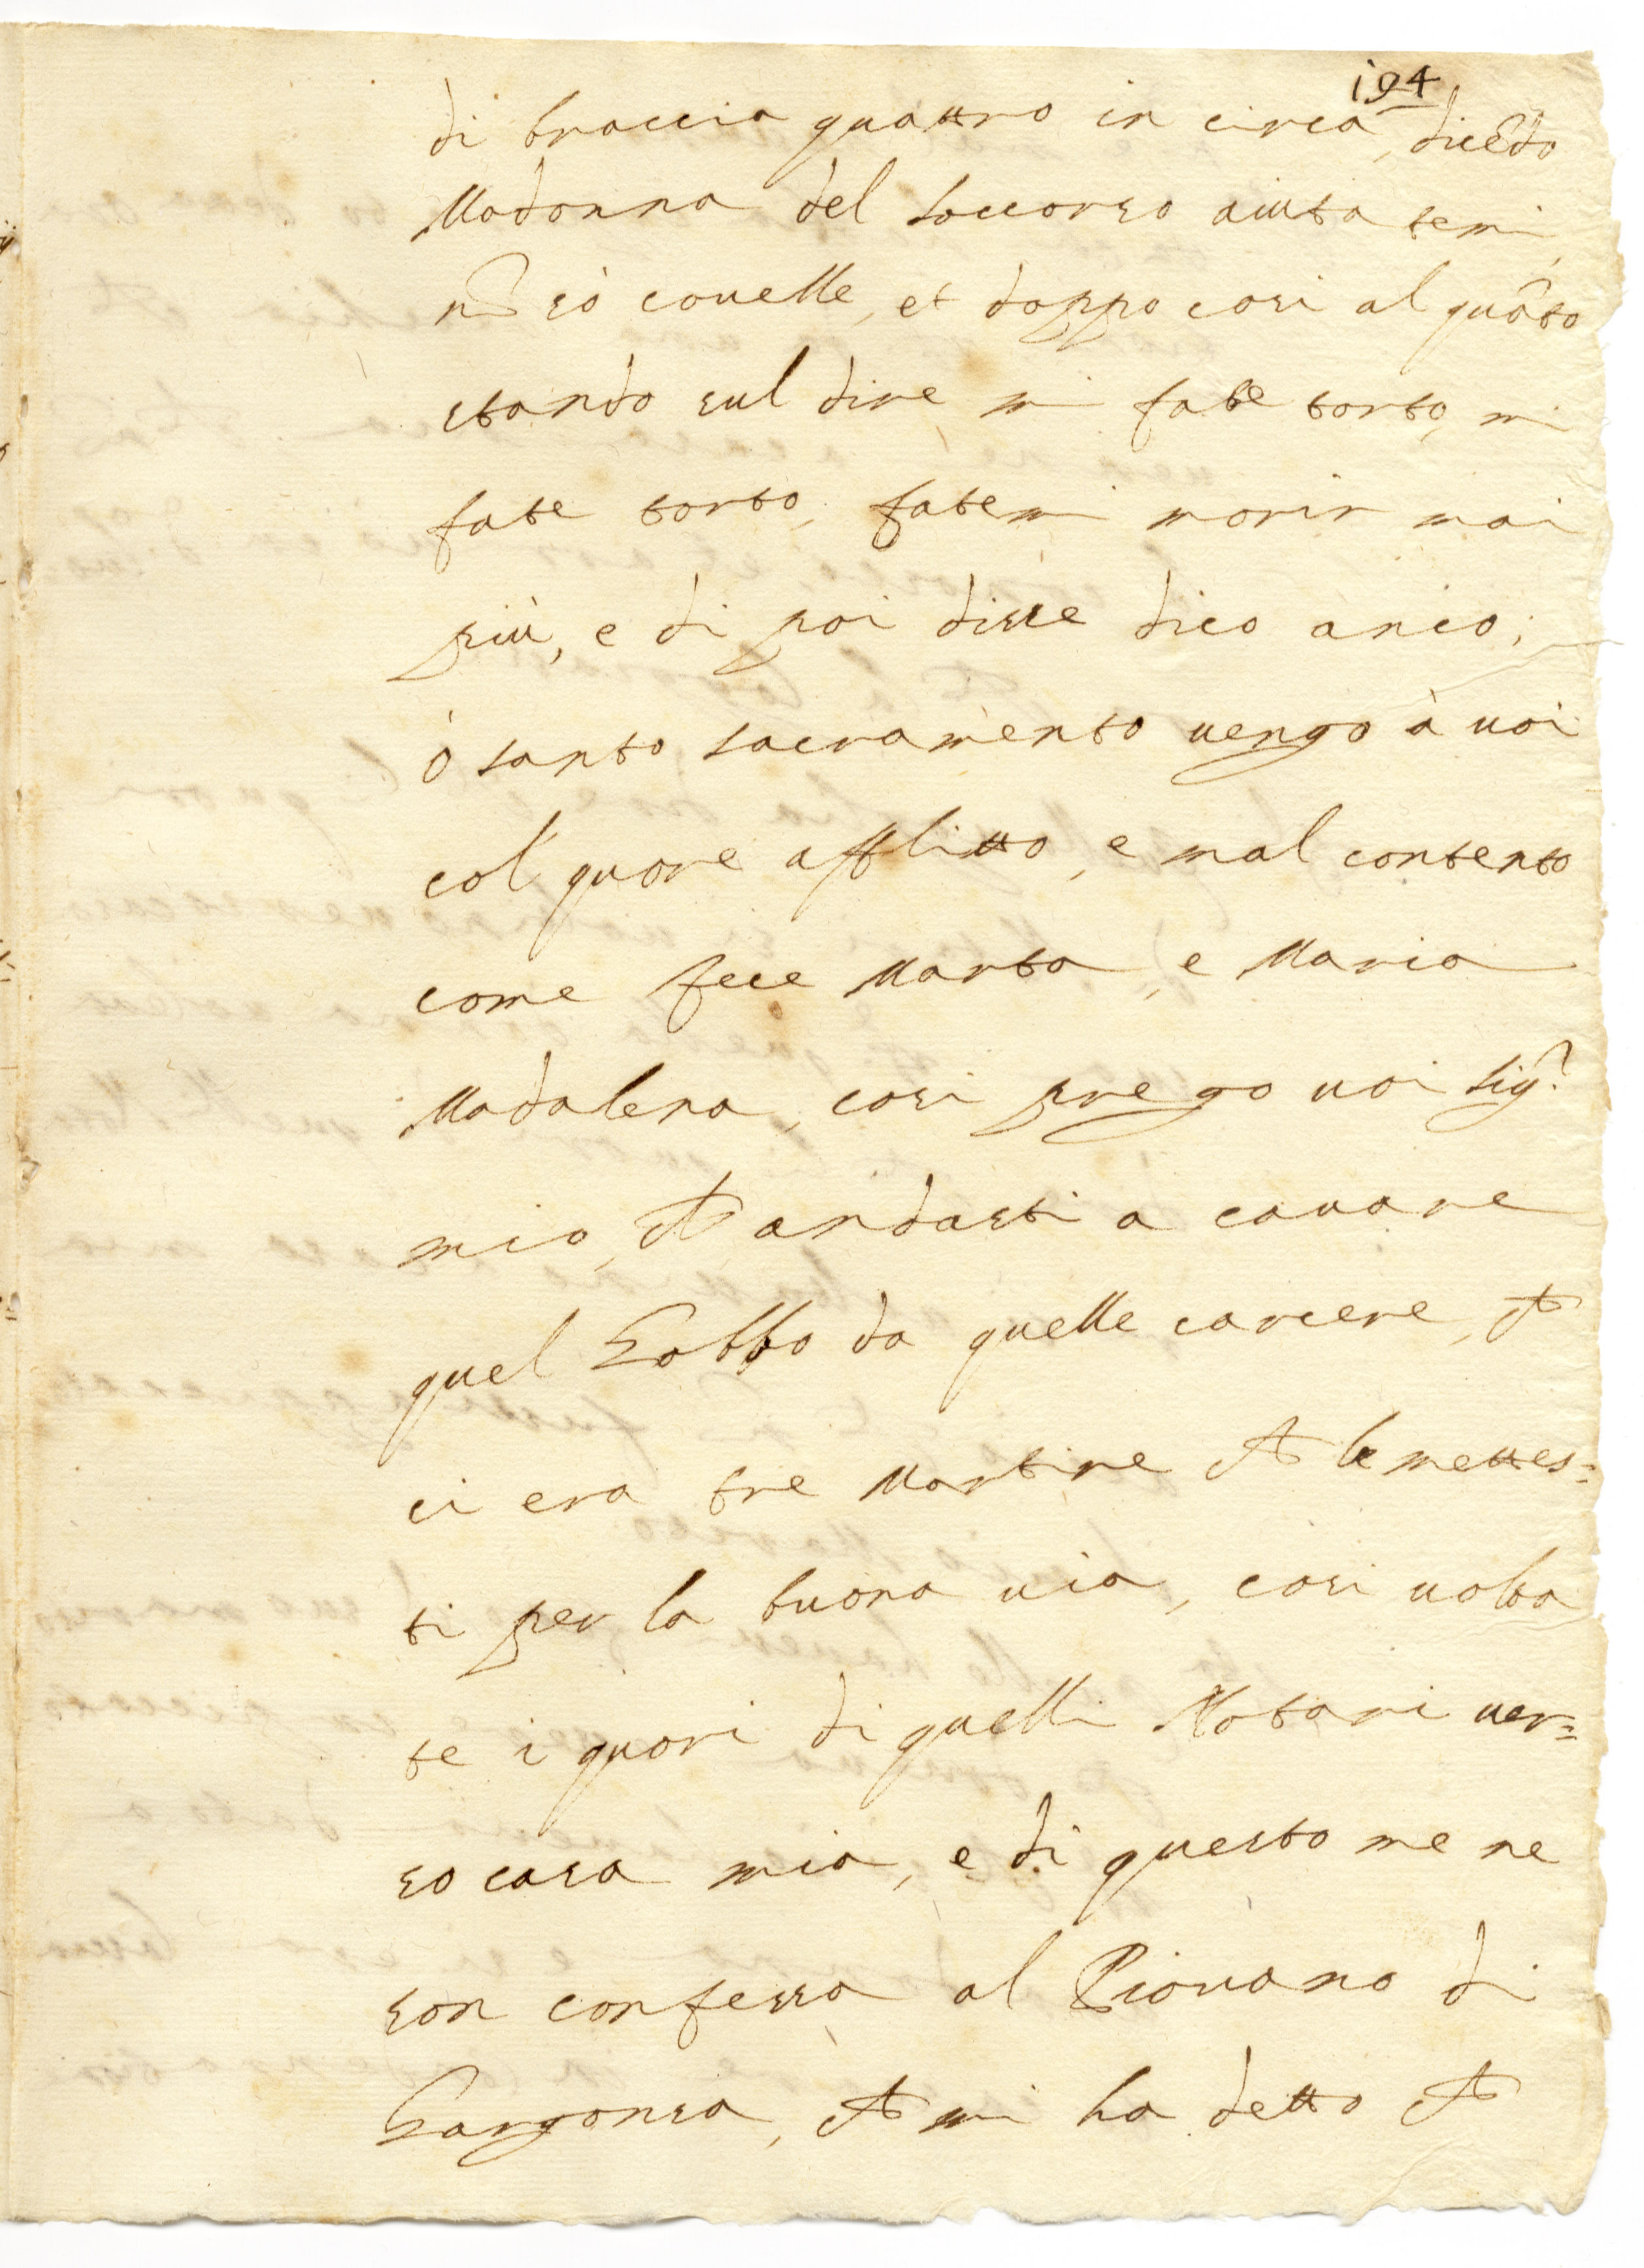 194
di braccia quattro in circa, dicēdo
Madonna del soccorso aiutatemi,
nō sò couelle, et doppo cosi al quāto
stando sul dire mi fate torto, mi
fate torto, fatemi morir mai
più, e di poi disse dico anco;
ò santo sacramento uengo à uoi
col quore afflitto, e mal contento
come fece Marta, e Maria
Madalena, cosi prego uoi Sig.re
mio, ch andasti a cauare
quel Gobbo da quelle carcere, ch
ci era tre Martire ch le mettes=
ti per la buona uia, cosi uolta
te i quori di quelli Notari uer=
so casa mia, e di questo me ne
son confessa al Piouano di
Gargonsa, ch mi ha detto ch